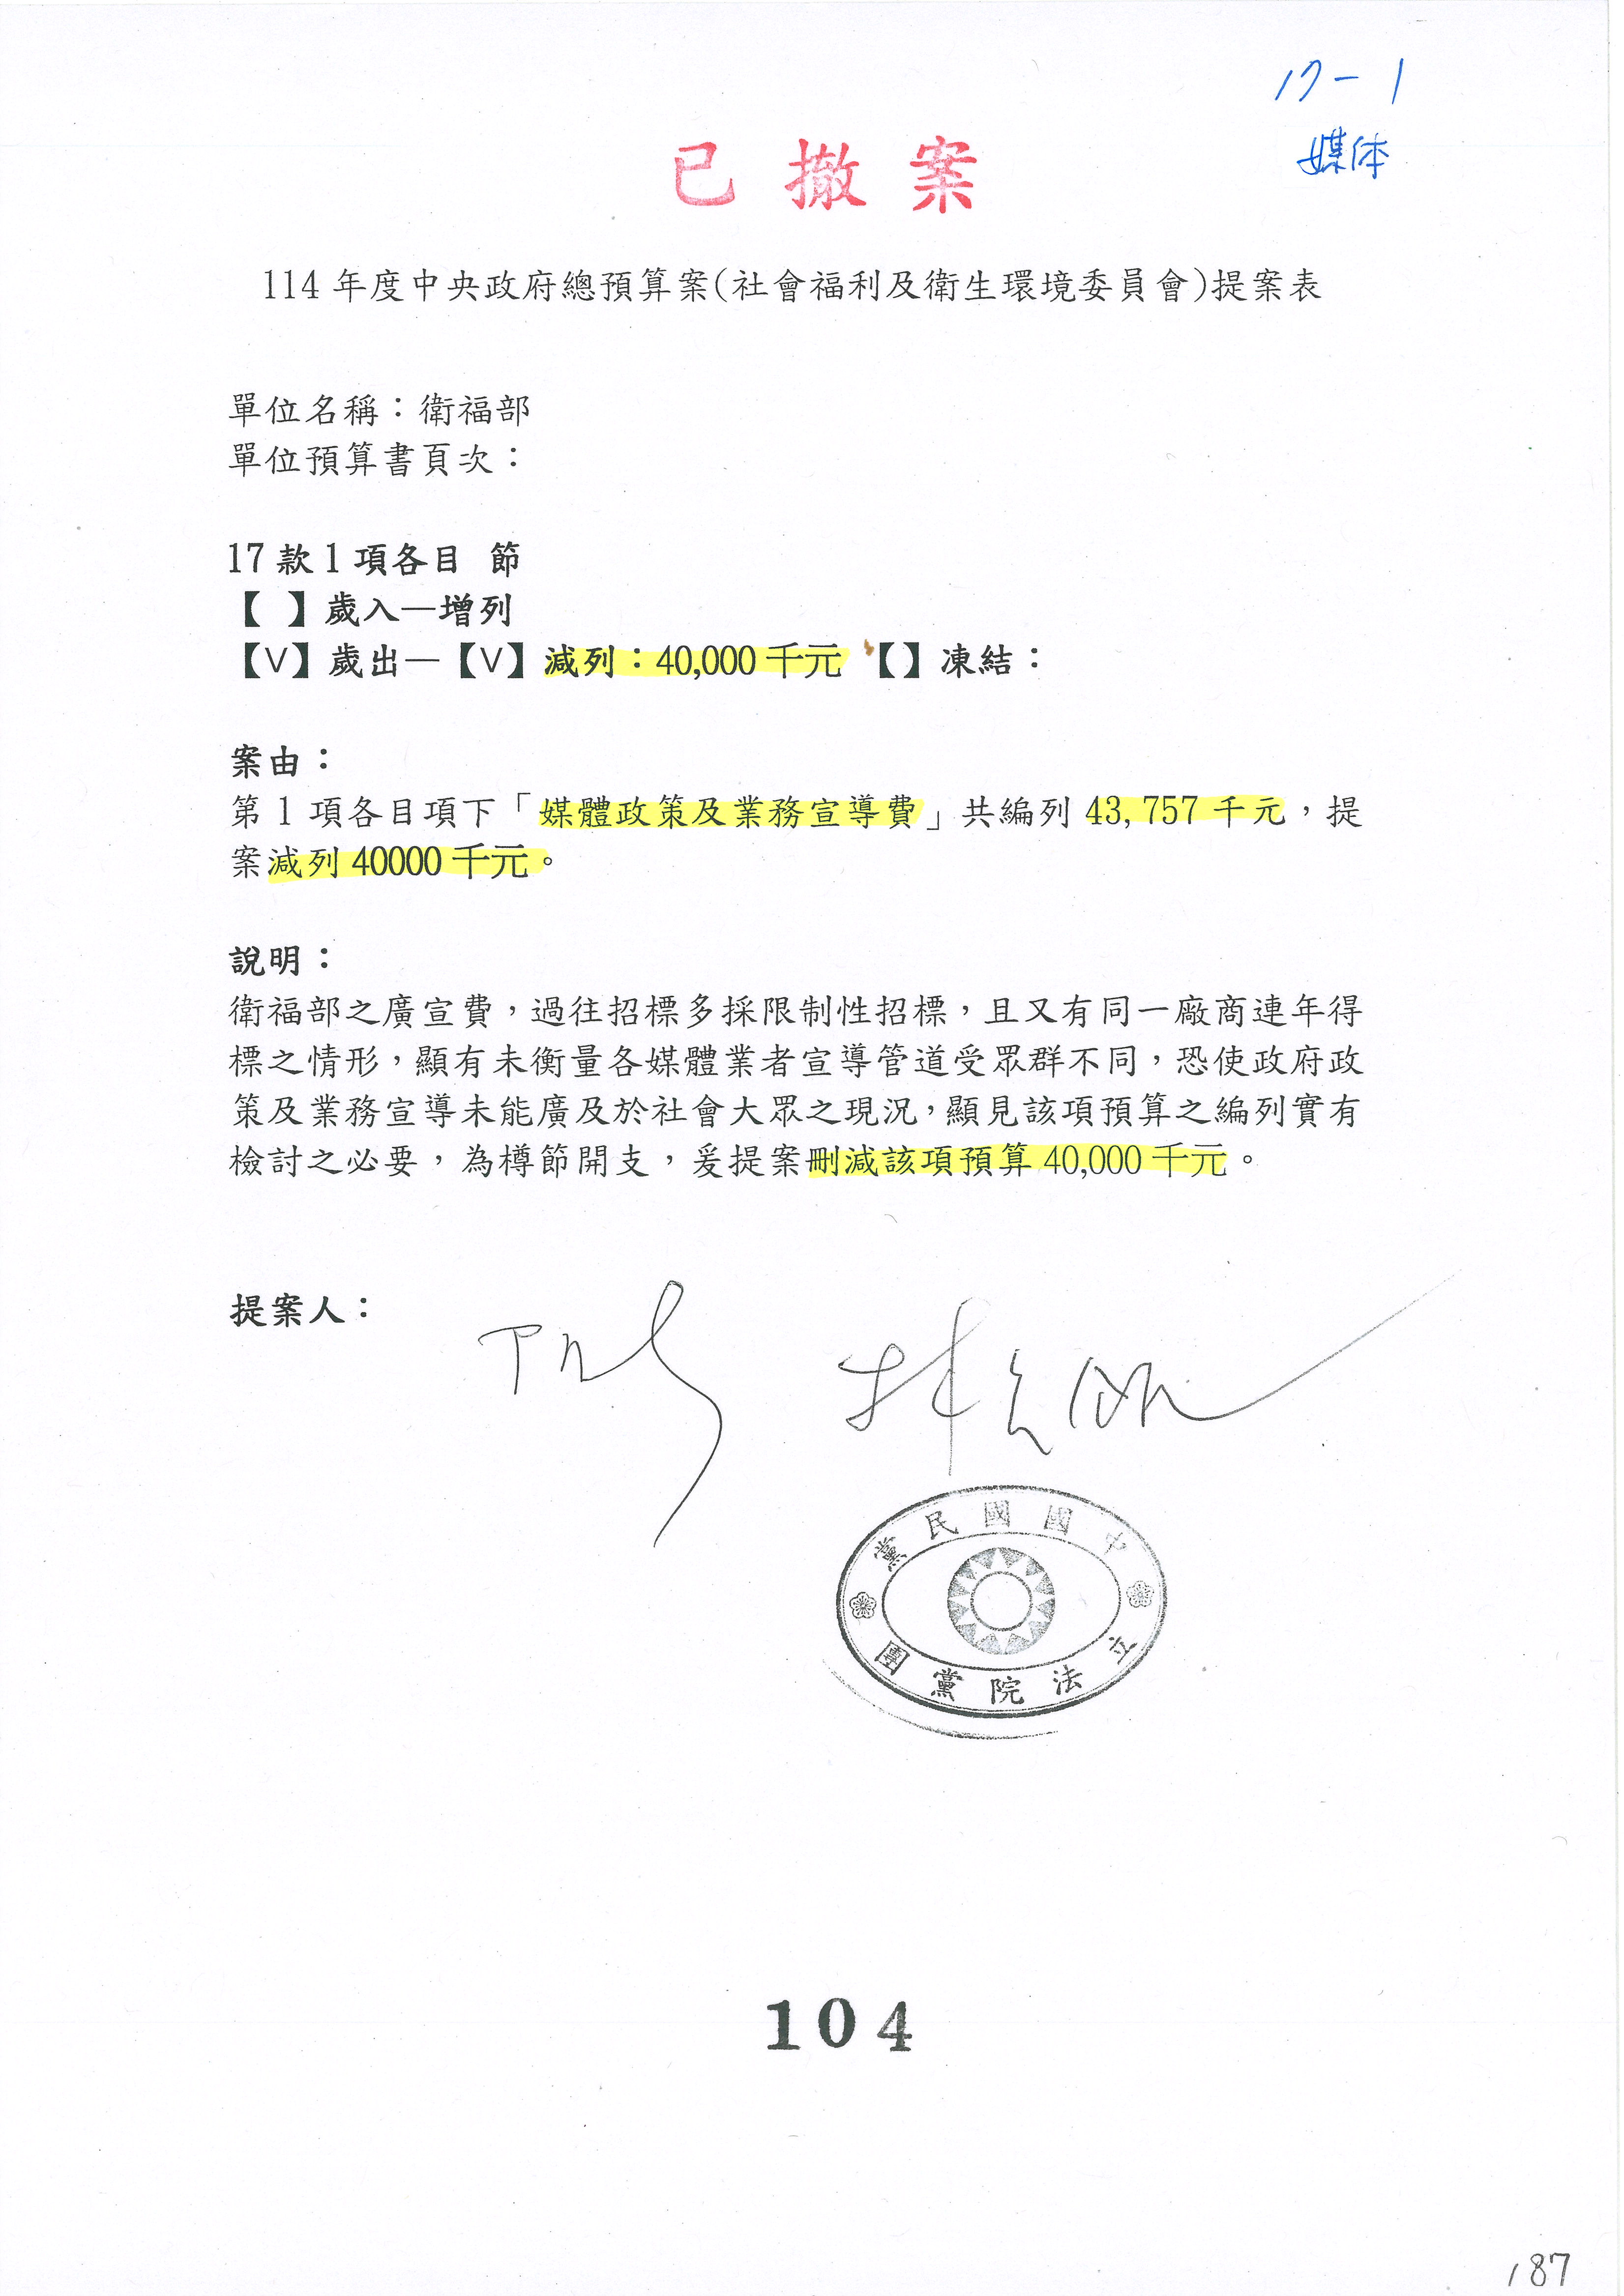 17-1
媒体
已撤案
114年度中央政府總預算案(社會福利及衛生環境委員會)提案表
單位名稱：衛福部
單位預算書頁次：
17款1項各目 節
【 】歲入—增列
【V】歲出—【V】減列：40,000千元 【】凍結：
案由：
第1項各目項下「媒體政策及業務宣導費」共編列43,757千元，提
案減列40000千元。
說明：
衛福部之廣宣費，過往招標多採限制性招標，且又有同一廠商連年得
標之情形，顯有未衡量各媒體業者宣導管道受眾群不同，恐使政府政
策及業務宣導未能廣及於社會大眾之現況，顯見該項預算之編列實有
檢討之必要，為樽節開支，爰提案刪減該項預算40,000千元。
提案人：
中國國民黨
立法院黨團
104
187